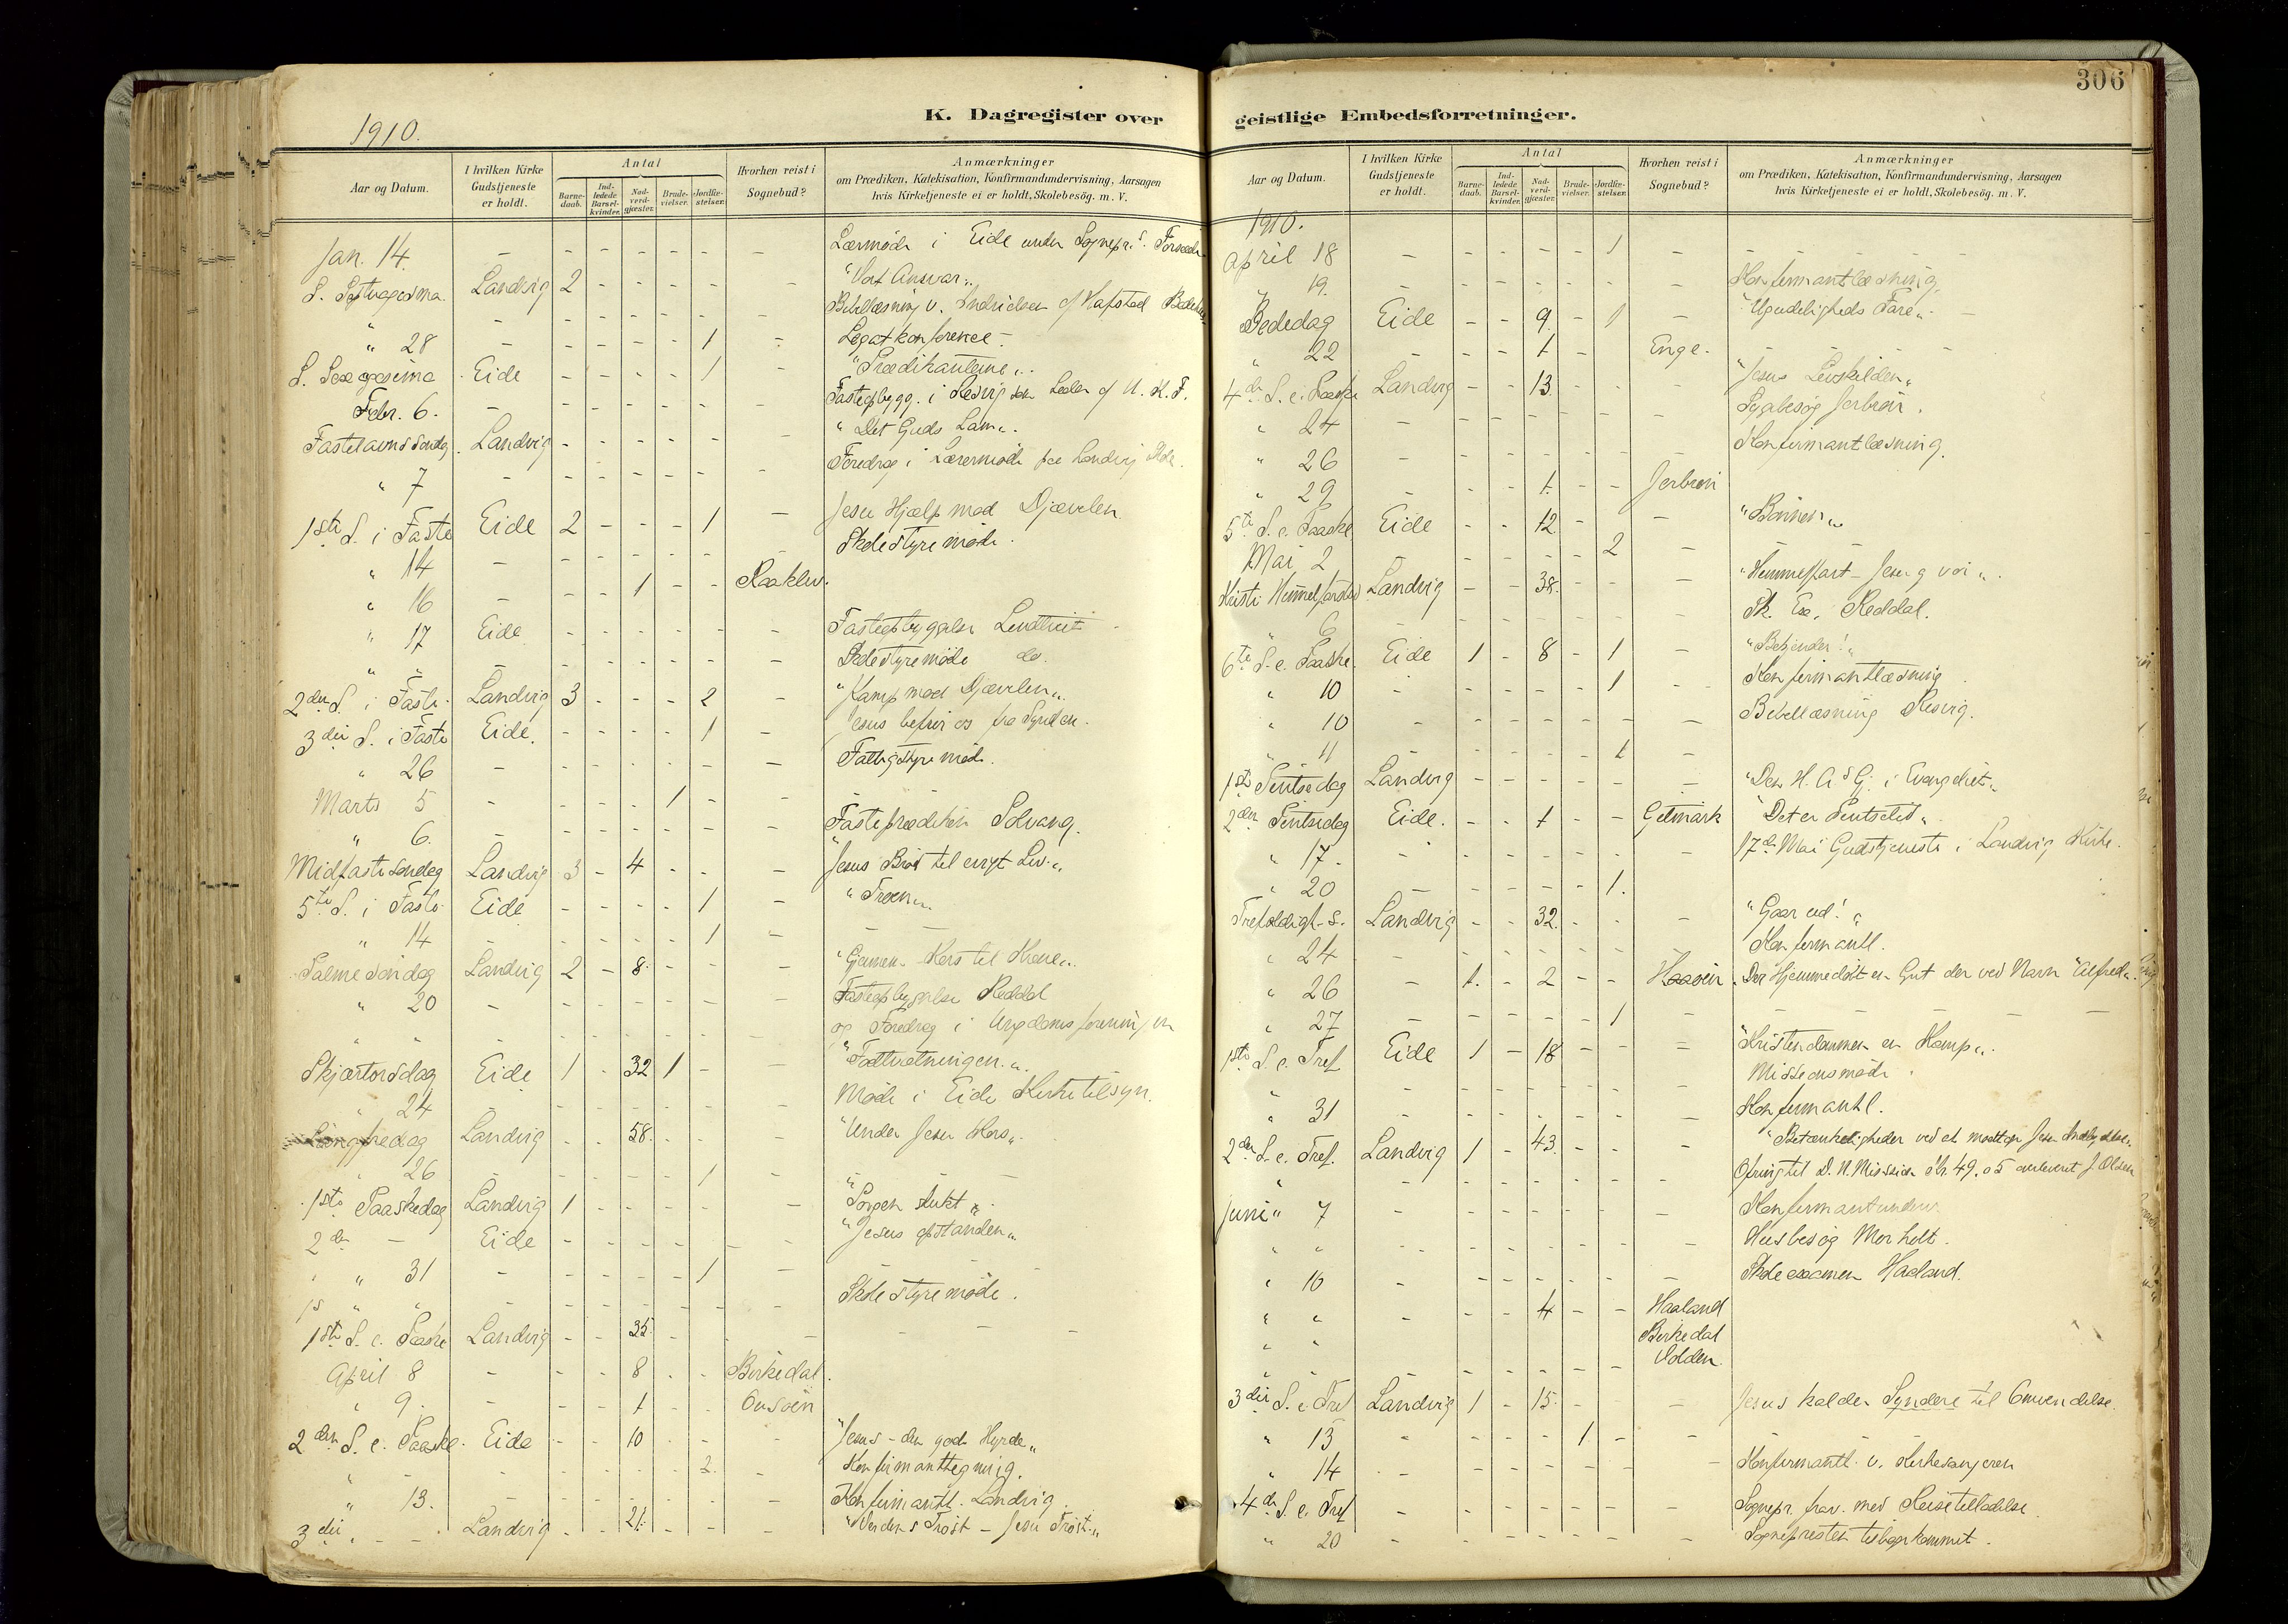 1910.
K. Dagregister over
Aar og Datum.
I hvilken Kirke Gudstjeneste er holdt.
Antal
Barnedaab.
Indledede Barselkvinder.
Nadverdgjæster.
Brudevielser.
Jordfæstelser.
Hvorhen reist i Sognebud?
Anmærkninger
om Prædiken, Katekisation, Konfirmandundervisning, Aarsagen
hvis Kirketjeneste ei er holdt, Skolebesög. m. V.
Jan. 14. - - - - - - - Lærmöde i Eide under Sognepr.s
S. Septuagesima. Landvig 2 - - - - - "Vort Ansvar"
" - - - - - - - Bibellæsning v.
" 28 - - - - - 1 - Legatkonference -
S. Sexagesima Eide - - - - 1 - "Prædikanterne"
Febr. 6. - - - - - - - Fasteopbygg. i
Fastelavnssöndag. Landvig - - - - - - "Det Guds Lam"
" 7 - - - - - - - Foredrag i Lærermöde paa Landvig
1ste S. i Faste Eide 2 - - - 1 - Jesu Hjælp mod Djævelen
" 14 - - - - - - - Skolestyremöde.
" 16 - - - 1 - - Raaklev.
" 17 Eide - - - - - - Fasteopbyggelse
" " - - - - - - - Skolestyremöde do.
2den S. i Faste. Landvig 3 - - - 2 - "Kamp mod Djævelen"
3die S. i Faste Eide. - - - - 1 - Jesus befrir os fra Synden.
" 26 - - - - - - - Fattigstyremöde.
Marts 5 - - - - 1 - -
" 6. - - - - - - - Fasteprædiken Solvang.
Midfaste Söndag Landvig 3 - 4 - - - "Jesus Bröd til evigt Liv"
5te S. i Faste Eide - - - - 1 - "Troen"
" 14 - - - - - 1 - -
Palmesöndag Landvig 2 - 8. - - - "Gjennem Kors til Krone"
" 20 - - - - - - - Fasteopbyggelse Reddal
" " - - - - - - og Foredrag i Ungdomsforeningen
Skjærtorsdag Eide 1 - 32 1 - - "Fodtvætningen"
" 24 - - - - - - - Möde i Eide Kirketilsyn.
Langfredag Landvig - - 58. - - - "Under Jesu Kors"
" 26 - - - - - 1 - -
1ste Paaskedag Landvig 1 - - - - - "Sorgen slukt"
2den - Eide - - - - - - "Jesus opstanden"
" 31 - - - - - 1 - -
" " - - - - - - - Skolestyremöde.
1ste S. e. Paaske Landvig - - 35. - - - - - -
April 8 - - - 8 - - Birkedal.
" 9. - - - 1 - -
2den S. e. Paaske. Eide - - 10 - - - "Jesus - den gode Hyrde"
" - - - - - 2. - Konfirmanttegning.
" 13. - - - - - - - Konfirmantl. Landvig.
3die " - Landvig - - 21. - - - "Verdens Tröst - Jesu Tröst"
306
geistlige Embedsforretninger.
Aar og Datum.
I hvilken Kirke Gudstjeneste er holdt.
Antal
Barnedaab.
Indledede Barselkvinder.
Nadverdgjæster.
Brudevielser.
Jordfæstelser.
Hvorhen reist i Sognebud?
Anmærkninger
om Prædiken, Katekisation, Konfirmandundervisning, Aarsagen
hvis Kirketjeneste ei er holdt, Skolebesög. m. V.
1910.
April 18 - - - - - 1 - -
" 19. - - - - - - - Konfirmantlæsning.
Bededag Eide - - 9. - 1 - "Ugudeligheds Fare"
" 22 - - - 1 - - Enge. -
4de S. e. Paaske Landvig - - 13. - - - "Jesus Livskilden"
" 24 - - - - - - - Sygebesög
" 26 - - - - - - - Konfirmantlæsning.
" 29 - - - 1. - -
5te S. e. Paaske Eide - - 12. - - - "Bönnen"
Mai 2 - - - - - 2 - -
Kristi Himmelfartsdag Landvig - - 38. - - - "Himmelfart - Jesu og vor"
" 6 - - - - - - - Sk. Ex. Reddal.
6te S. e. Paaske. Eide 1 - 8 - 1 - "Bekjender!"
" 10 - - - - - 1 - Konfirmantlæsning
" 10 - - - - - - - Bibellæsning
" 11 - - - - - 1 -
1ste Pintsedag Landvig - - - - - - "Den H. A.s Gj. i Evangeliet"
2den Pintsedag Eide. - - 1 - - "Det er Pintsetid"
" 17. - - - - - - - 17de Mai Gudstjeneste i Landvig Kirke.
" 20 - - - - - 1.
Trefoldigh. S. Landvig - - 32. - - - "Gaar ud!"
" 24 - - - - - - - Konfirmantl.
" 26 - 1. - 2 - - Den Hjemmedöbte en Gut der ved Navn "Alfred"
" 27 - - - - - 1 - -
1ste S. e. Tref. Eide 1 - 18 - - - "Kristendommen en Kamp"
- - - - - - Missionsmöde.
" 31 - - - - - - - Konfirmantl.
2den S. e. Tref. Landvig 1 - 43. - - - "Betænkeligheder ved at modtage Jesu Indbydelse"
" - - - - - - - Ofring til D. N. Mission Kr. 49.05 overleveret J. Olsen
Juni " 7 - - - - - - - Konfirmantunderv.
" " - - - - - - - Husbesög Morholt.
" 10 - - - - - - - Skoleexamen Haaland.
" " - - - 4 - - Haaland
" " - Birkedal
" " - - - - - -
3die S. e. Tref Landvig 1 - 15. - - - Jesus kalder Syndere til Omvendelse.
" 13 - - - - 1. - - -
" 14 - - - - - - - Konfirmantl. v. Kirkesangeren
4de S. e. Tref - - - - - - - Sognepr. frav. med Reisetilladelse
" 20 - - - - - - - Sognepresten tilbagekommet.